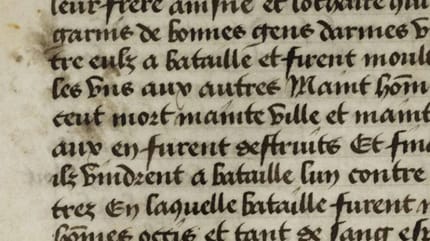 leur frere aisne et lothaire qui
garnis de bonnes gens darmes v
tre eulz a bataille et firent moult
les vns aux autres Maint hom
ceut mort mainte ville et maint
aux en furent destruits Et fina
ilz vindrent a bataille lun contre
trez En laquelle bataille furent m
hommes occis et tant de sang esp